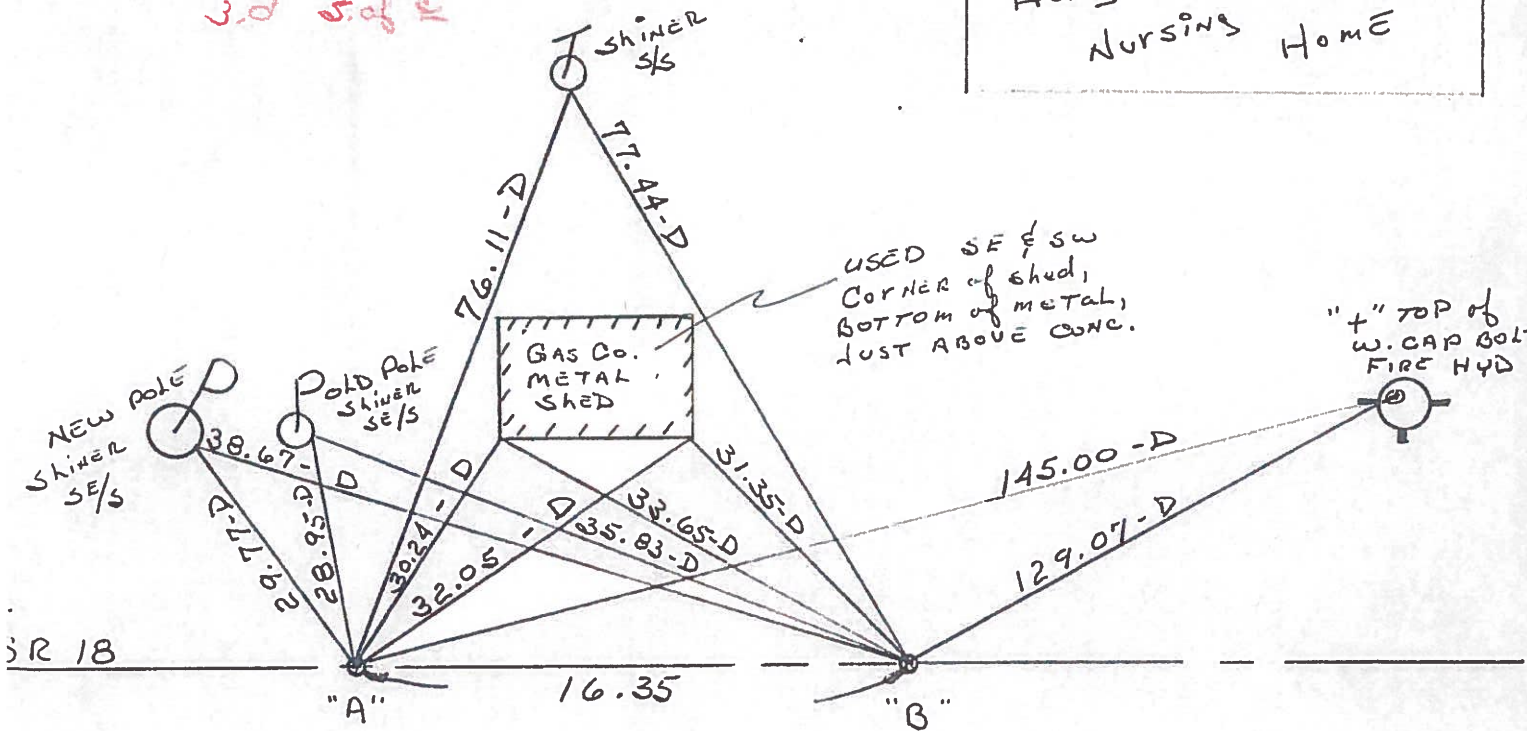 3.0 S. of
Nursing Home
Shiner
S/S
77.44-D
76.11-D
USED SE & SW
Corner of shed,
Bottom of metal,
Just above conc.
Gas Co.
Metal
Shed
"+" Top of
W. Cap Bolt
Fire Hyd
New Pole
Shiner
SE/S
Old Pole
Shiner
SE/S
38.67-D
29.77-D
28.95-D
30.24-D
32.05-D
33.65-D
35.83-D
31.35-D
145.00-D
129.07-D
SR 18
16.35
"A"
"B"